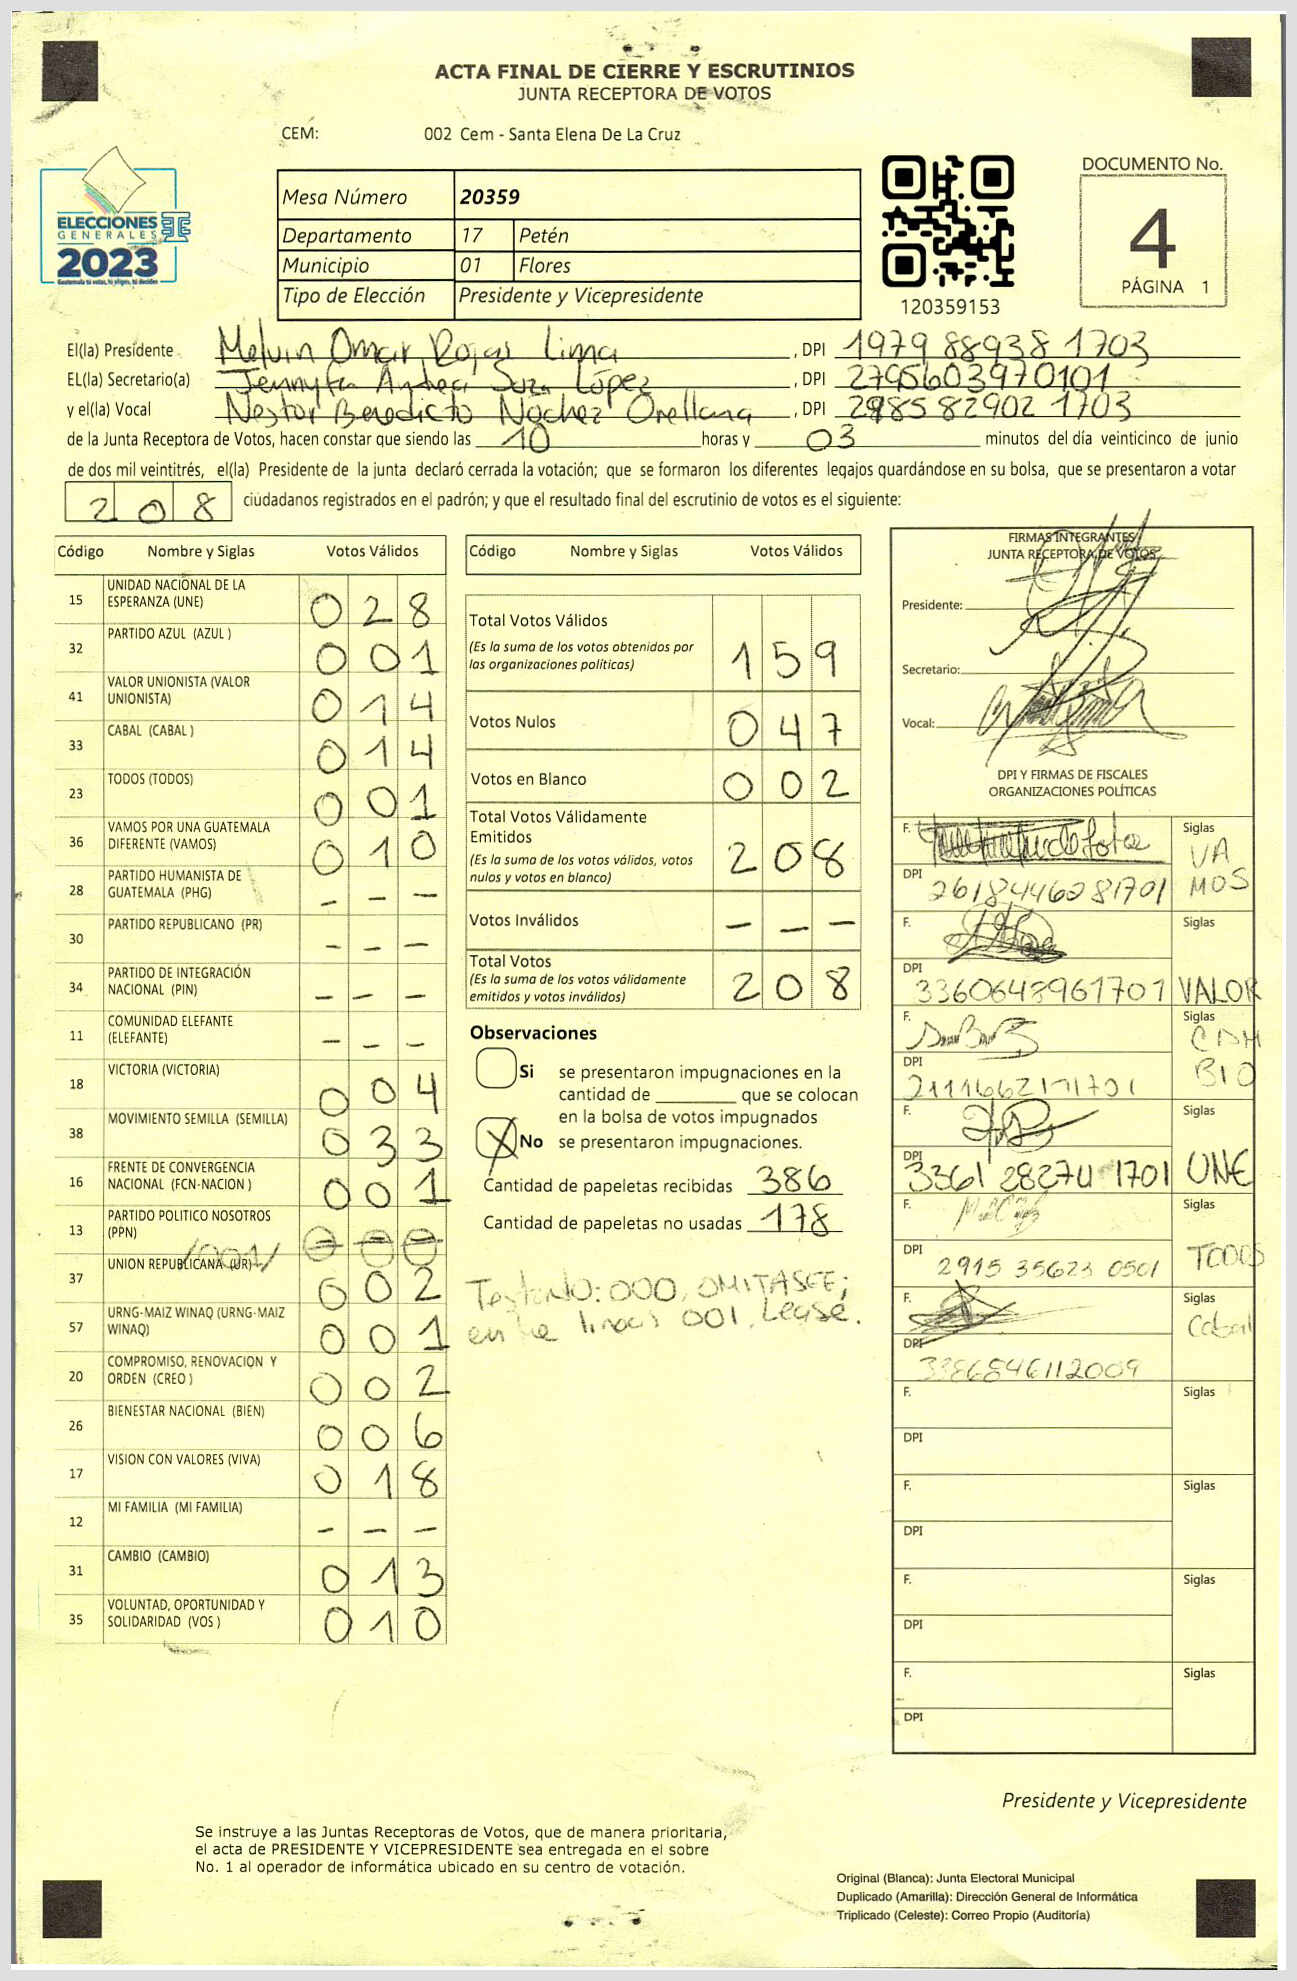 ACTA FINAL DE CIERRE Y ESCRUTINIOS
JUNTA RECEPTORA DE VOTOS
CEM: 002 Cem - Santa Elena De La Cruz
ELECCIONES
GENERALES
2023
Guatemala tú votas, tú eliges, tú decides
Mesa Número 20359
Departamento 17 Petén
Municipio 01 Flores
Tipo de Elección Presidente y Vicepresidente
120359153
DOCUMENTO No.
4
PÁGINA 1
El(la) Presidente Melvin Omar Rojas Lima, DPI 1979 88938 1703
EL(la) Secretario(a) Jennyfer Andrea Suza López, DPI 2795603970101
y el(la) Vocal Nestor Benedicto Nochez Orellana, DPI 2985 82902 1703
de la Junta Receptora de Votos, hacen constar que siendo las 10 horas y 03 minutos del día veinticinco de junio
de dos mil veintitrés, el(la) Presidente de la junta declaró cerrada la votación; que se formaron los diferentes legajos guardándose en su bolsa, que se presentaron a votar
208 ciudadanos registrados en el padrón; y que el resultado final del escrutinio de votos es el siguiente:
Código Nombre y Siglas Votos Válidos
15 UNIDAD NACIONAL DE LA ESPERANZA (UNE) 028
32 PARTIDO AZUL (AZUL ) 001
41 VALOR UNIONISTA (VALOR UNIONISTA) 014
33 CABAL (CABAL ) 014
23 TODOS (TODOS) 001
36 VAMOS POR UNA GUATEMALA DIFERENTE (VAMOS) 010
28 PARTIDO HUMANISTA DE GUATEMALA (PHG) - - -
30 PARTIDO REPUBLICANO (PR) - - -
34 PARTIDO DE INTEGRACIÓN NACIONAL (PIN) - - -
11 COMUNIDAD ELEFANTE (ELEFANTE) - - -
18 VICTORIA (VICTORIA) 004
38 MOVIMIENTO SEMILLA (SEMILLA) 033
16 FRENTE DE CONVERGENCIA NACIONAL (FCN-NACION ) 001
13 PARTIDO POLITICO NOSOTROS (PPN) /001/ 000
37 UNION REPUBLICANA (UR) 002
57 URNG-MAIZ WINAQ (URNG-MAIZ WINAQ) 001
20 COMPROMISO, RENOVACION Y ORDEN (CREO ) 002
26 BIENESTAR NACIONAL (BIEN) 006
17 VISION CON VALORES (VIVA) 018
12 MI FAMILIA (MI FAMILIA) - - -
31 CAMBIO (CAMBIO) 013
35 VOLUNTAD, OPORTUNIDAD Y SOLIDARIDAD (VOS ) 010
Código Nombre y Siglas Votos Válidos
Total Votos Válidos 159
(Es la suma de los votos obtenidos por
las organizaciones políticas)
Votos Nulos 047
Votos en Blanco 002
Total Votos Válidamente
Emitidos 208
(Es la suma de los votos válidos, votos
nulos y votos en blanco)
Votos Inválidos - - -
Total Votos 208
(Es la suma de los votos válidamente
emitidos y votos inválidos)
Observaciones
Si se presentaron impugnaciones en la
cantidad de ________ que se colocan
en la bolsa de votos impugnados
X No se presentaron impugnaciones.
Cantidad de papeletas recibidas 386
Cantidad de papeletas no usadas 178
Testado: 000, OMITASEE;
entre lineas 001, Lease.
FIRMAS INTEGRANTES
JUNTA RECEPTORA DE VOTOS
Presidente:
Secretario:
Vocal:
DPI Y FIRMAS DE FISCALES
ORGANIZACIONES POLÍTICAS
F. Siglas VAMOS
DPI 2618446281701
F. Siglas VALOR
DPI
F. Siglas
DPI
F. Siglas UNE
DPI 3361 28274 1701
F. Siglas TODOS
DPI 2915 35623 0501
F. Siglas Cabal
DPI 3386846112009
F. Siglas
DPI
F. Siglas
DPI
F. Siglas
DPI
F. Siglas
DPI
Presidente y Vicepresidente
Se instruye a las Juntas Receptoras de Votos, que de manera prioritaria,
el acta de PRESIDENTE Y VICEPRESIDENTE sea entregada en el sobre
No. 1 al operador de informática ubicado en su centro de votación.
Original (Blanca): Junta Electoral Municipal
Duplicado (Amarilla): Dirección General de Informática
Triplicado (Celeste): Correo Propio (Auditoría)